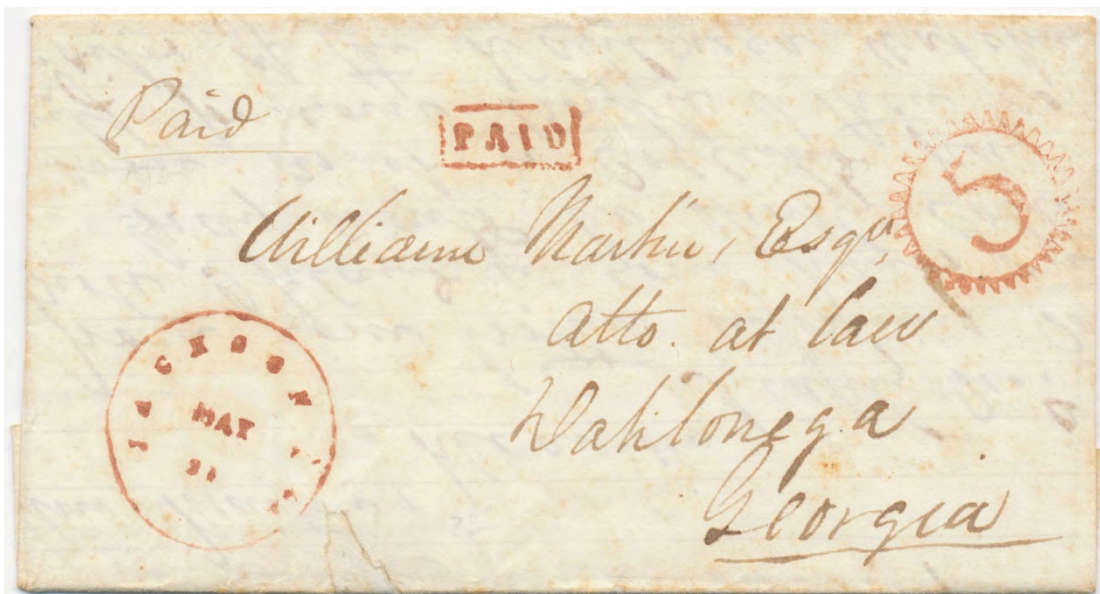 Paid
PAID
5
William Martin, Esqr,
Atto. at Law
Dahlonega
Georgia
JACKSON
MAY